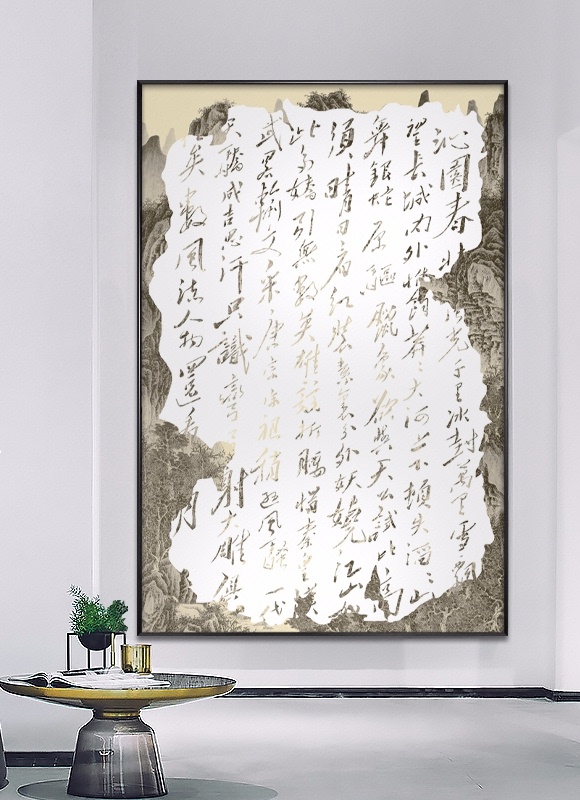 沁園春 北光千里冰封萬里雪飄
望長城內外惟餘莽莽大河上下頓失滔滔山
舞銀蛇原驅臘象欲與天公試比高
須晴日看紅裝素裹分外妖嬈江山如
此多嬌引無數英雄競折腰惜秦皇漢
武畧輸文采唐宗宋祖稍遜風騷一代
天驕成吉思汗只識彎弓射大雕俱
矣數風流人物還看月